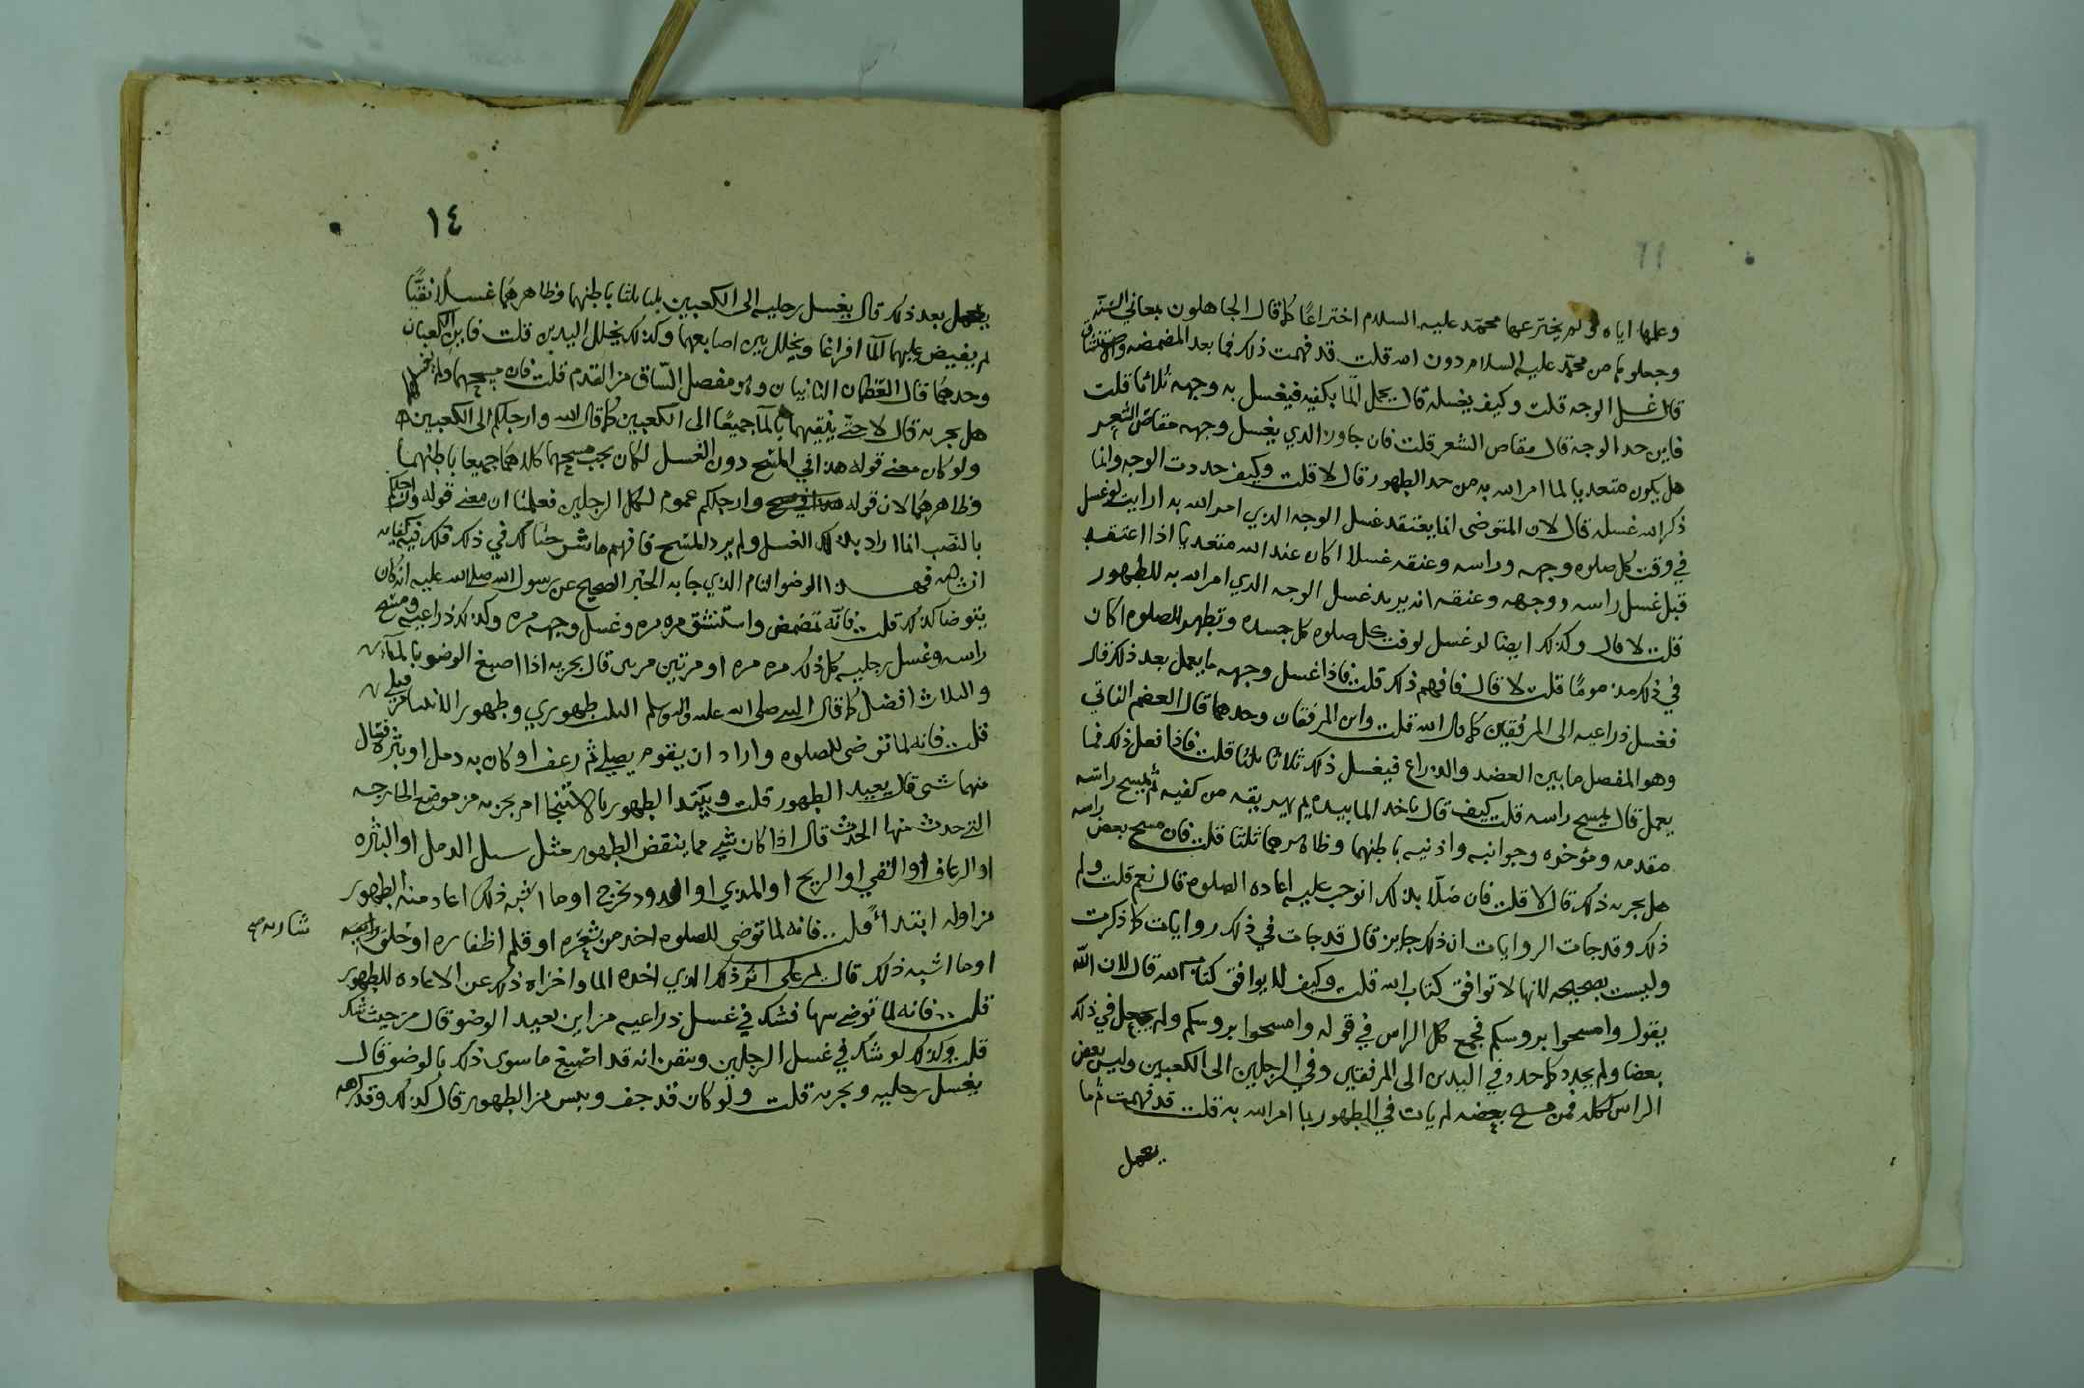 وعلمها اياه ولم يخترعها محمد عليه السلام اختراعا كما قال الجاهلون بمعاني السنه
وجعلوها من محمد عليه السلام دون الله قلت قد فهمت ذلك فما بعد المضمضه والاستنشاق
قال غسل الوجه قلت وكيف يغسله قال يحمل الما بكفيه فيغسل به وجهه ثلاثا قلت
فاين حد الوجه قال مقاص الشعر قلت فان جاوز الذي يغسل وجهه مقاص الشعر
هل يكون متعديا لما امر الله به من حد الطهور قال لا قلت وكيف حددت الوجه وانما
ذكر الله غسله قال لان المتوضى انما يعتقد غسل الوجه الذي امر الله به ارايت لو غسل
في وقت كل صلوه وجهه وراسه وعنقه غسلا اكان عند الله متعديا اذا اعتقد
قبل غسل راسه ووجهه وعنقه انه يريد غسل الوجه الذي امر الله به للطهور
قلت لا قال وكذلك ايضا لو غسل لوقت كل صلوه كل جسده وتطهر للصلوه اكان
في ذلك مذموما قلت لا قال فافهم ذلك قلت فاذا غسل وجهه ما يعمل بعد ذلك قال
فغسل ذراعيه الى المرفقين كما قال الله قلت واين المرفقان وحدهما قال العضم الناتي
وهو المفصل ما بين العضد والذراع فيغسل ذلك ثلاثا ثلثا قلت فاذا فعل ذلك فما
يعمل قال يمسح راسه قلت كيف قال ياخذ الما بيده ثم يهريقه من كفيه ثم يمسح راسه
مقدمه ومؤخره وجوانبه واذنيه باطنهما وظاهرهما ثلثا قلت فان مسح بعض راسه
هل يجزيه ذلك قال لا قلت فان صلا بذلك اتوجب عليه اعاده الصلوه قال نعم قلت ولم
ذلك وقد جات الروايات ان ذلك جايز قال قد جات في ذلك روايات كما ذكرت
وليست بصحيحه لانها لا توافق كتاب الله قلت وكيف لا يوافق كتاب الله قال لان الله
يقول وامسحوا بروسكم فجمع كل الراس في قوله وامسحوا بروسكم ولم يجعل في ذلك
بعضا ولم يحدد كما حدد في اليدين الى المرفقين وفي الرجلين الى الكعبين وليس بعض
الراس ككله فمن مسح بعضه لم يات في الطهور بما امر الله به قلت قد فهمت ثم ما
يعمل
١٤
يعمل بعد ذلك قال يغسل رجليه الى الكعبين ثلثا ثلثا باطنهما وظاهرهما غسلا نقيا
ثم يفيض عليهما الما افراغا ويخلل بين اصابعهما وكذلك يخلل اليدين قلت فاين الكعبان
وحدهما قال العظمان الناتيان وهو مفصل الساق من القدم قلت فان مسحهما ولم يغسلهما
هل يجزيه قال لا حتى ينقيهما بالما جميعا الى الكعبين كما قال الله وارجلكم الى الكعبين
ولو كان معنى قوله هذا في المسح دون الغسل لكان يجب مسحهما كلاهما جميعا باطنهما
وظاهرهما لان قوله وارجلكم عموم لكل الرجلين فعلمنا ان معنى قوله وارجلكم
بالنصب انما اراد بذلك الغسل ولم يرد المسح فافهم ما شرحنا لك في ذلك ففيه كفايه
ان شا الله فهذا الوضوا التام الذي جا به الخبر الصحيح عن رسول الله صلى الله عليه انه كان
يتوضا كذلك قلت فانه تمضمض واستنشق مره مره وغسل وجهه مره وكذلك ذراعيه ومسح
راسه وغسل رجليه كل ذلك مره مره او مرتين مرتين قال يجزيه اذا اصبغ الوضو بالماء
والثلاث افضل كما قال النبي صلى الله عليه واله وسلم الثلث طهوري وطهور الانبيا من قبلي
قلت فانه لما توضى للصلوه واراد ان يقوم يصلي ثم رعف او كان به دمل او بثره فسال
منها شي قال يعيد الطهور قلت ويبتدا الطهور بالاستنجا ام يجزيه من موضع الخارجه
التي حدث منها الحدث قال اذا كان شي مما ينقض الطهور مثل سيل الدمل او البثره
او الرعاف او القي او الريح او المذي او الدود يخرج او ما اشبه ذلك اعاد منه الطهور
من اوله ابتداء قلت فانه لما توضى للصلوه اخذ من شعره او قلم اظفاره او حلق راسه
شاربه صح
او ما اشبه ذلك قال يمر على اثر ذلك الذي اخذه الما واجزاه ذلك عن الاعاده للطهور
قلت فانه لما توضى سها فشك في غسل ذراعيه من اين يعيد الوضو قال من حيث شك
قلت وكذلك لو شك في غسل الرجلين وتيقن انه قد اصبغ ما سوى ذلك بالوضو قال
يغسل رجليه ويجزيه قلت ولو كان قد جف ويبس من الطهور قال كذلك وقد كره